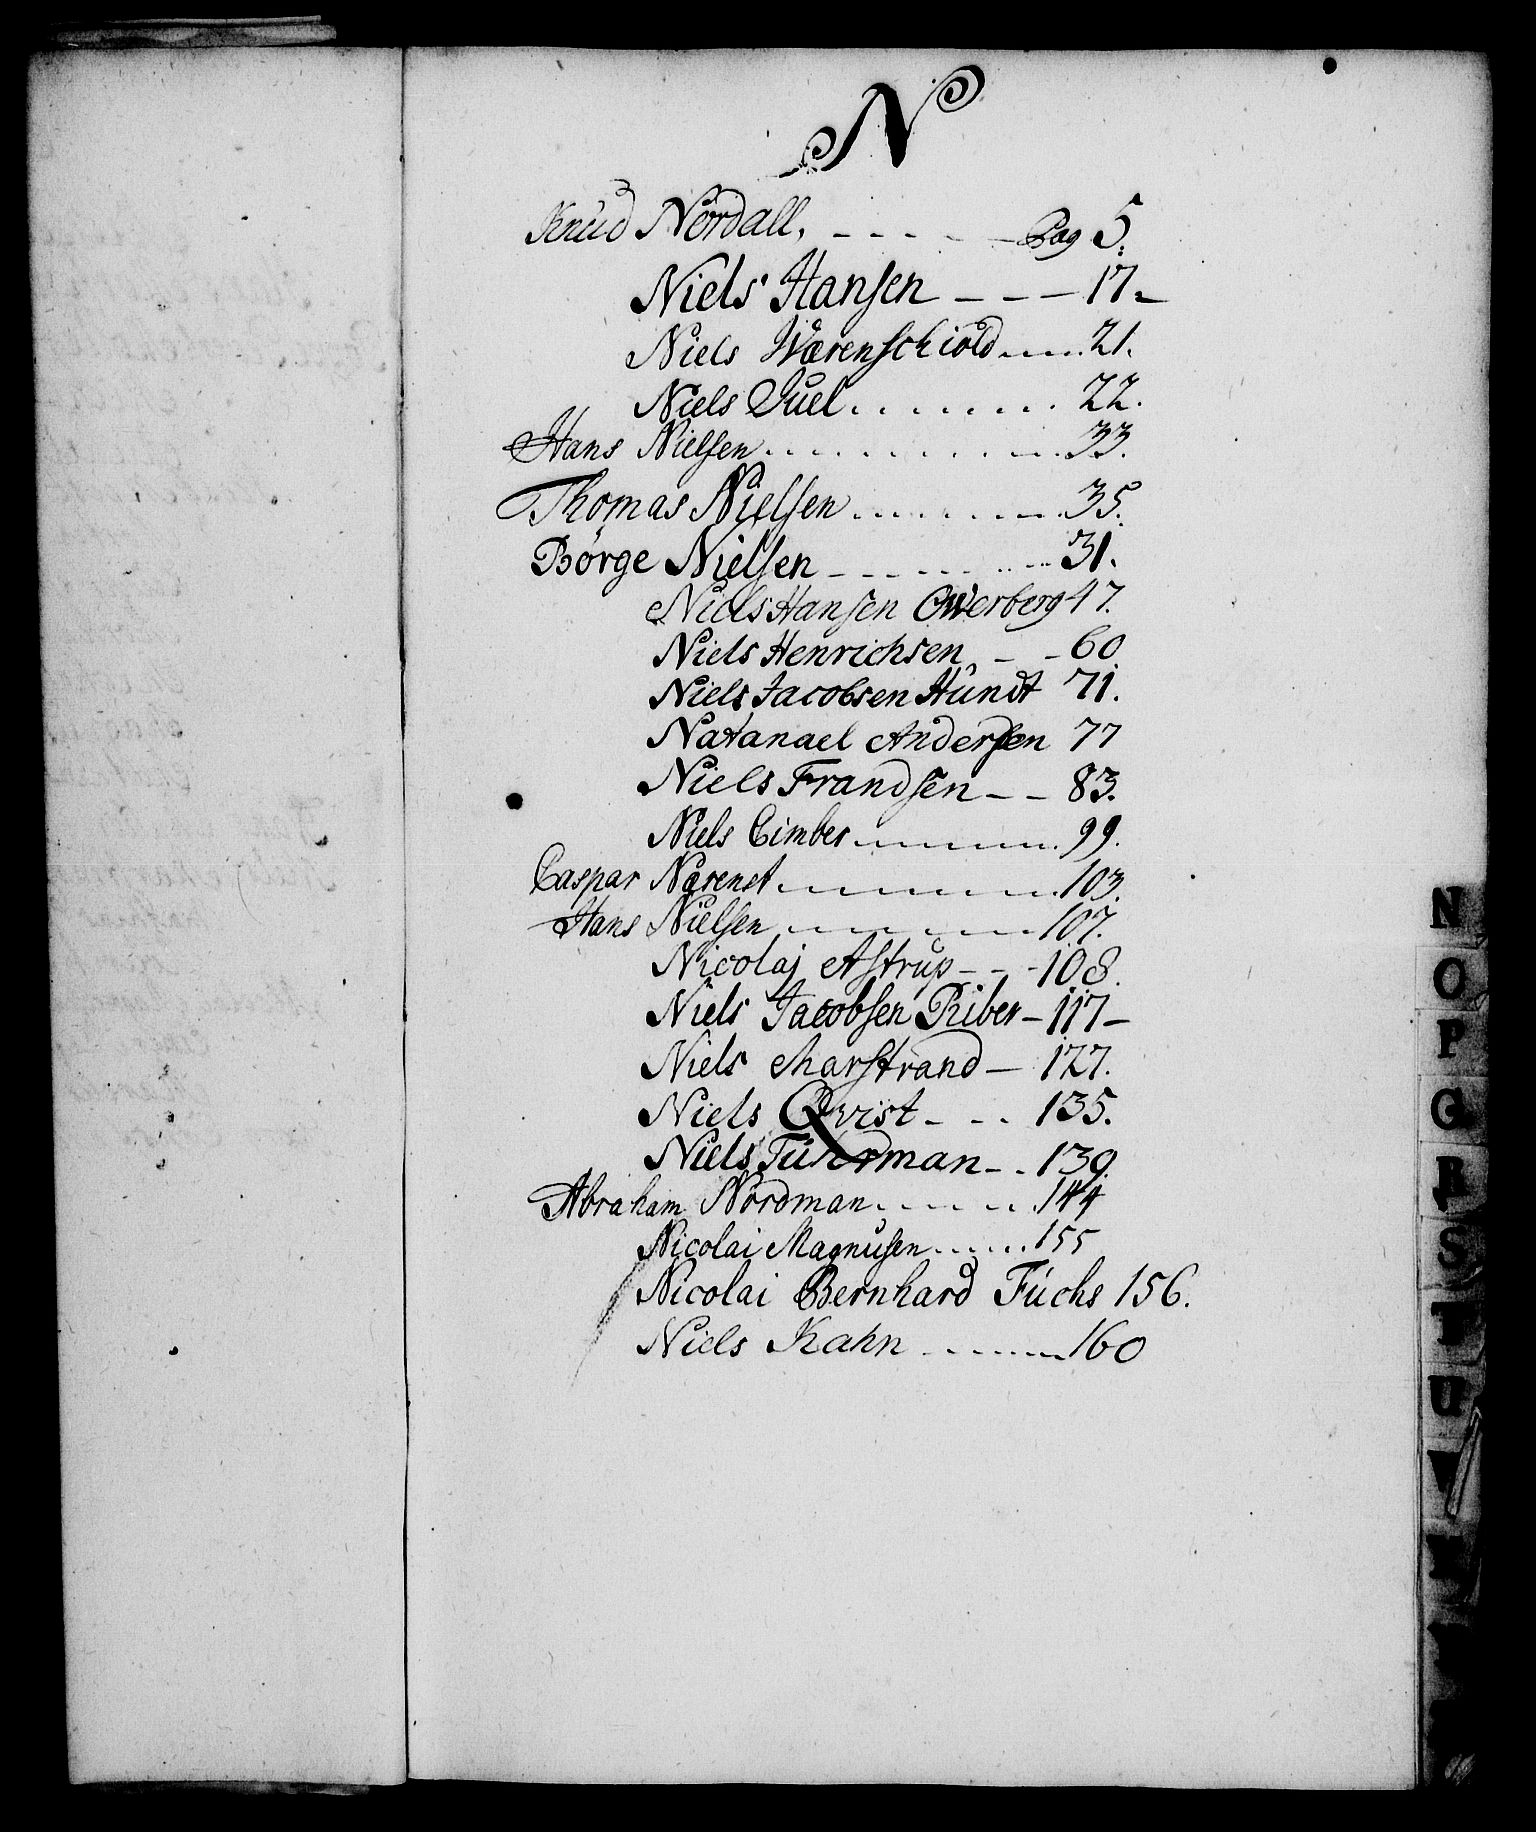 N
Knud Nordall, - - - - - Pag 5.
Niels Hansen - - - 17.
Niels Wærenschiold ..... 21.
Niels Juel ........ 22.
Hans Nielsen ........... 33.
Thomas Nielsen ........ 35.
Börge Nielsen - - - - - 31.
Niels Hansen Owerberg 47.
Niels Henrichsen - - 60
Niels Jacobsen Hundt 71.
Natanael Andersen 77
Niels Frandsen - - 83.
Niels Cimber ........ 99.
Caspar Narenst ........ 103.
Hans Nielsen ........ 107.
Nicolaj Astrup - - - 108.
Niels Jacobsen Riber - 117 -
Niels Marstrand - 127.
Niels Qvist - - - 135.
Niels Tuxerman - - 139.
Abraham Nordman ....... 144
Nicolai Magnusen ...... 155
Nicolai Bernhard Fuchs 156.
Niels Kahn ........ 160
N
O
P
Q
R
S
T
U
V